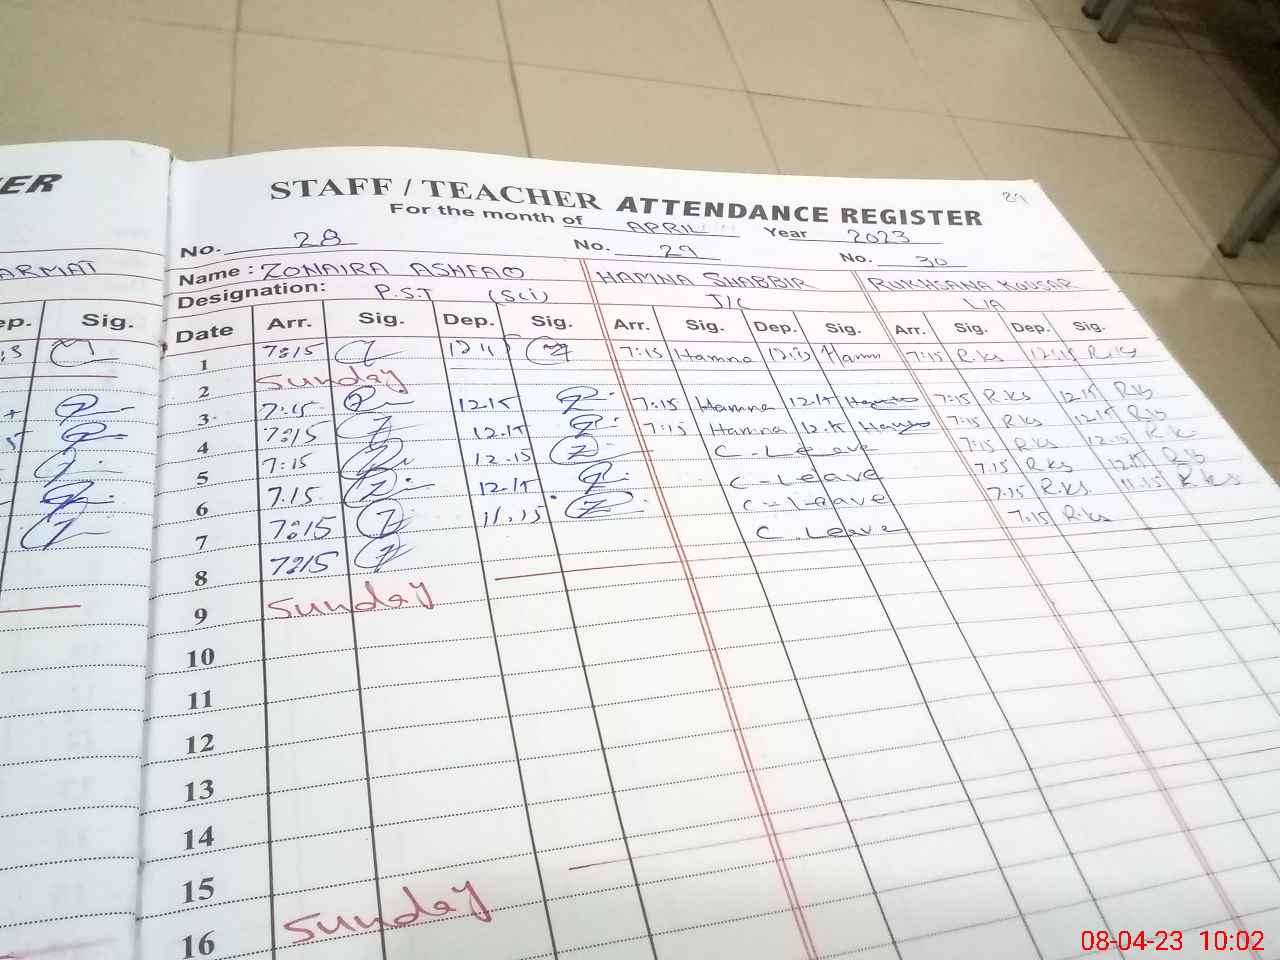 ER
STAFF / TEACHER ATTENDANCE REGISTER
For the month of APRIL Year 2023
No. 28 No. 29 No. 30
ARMAT
Name : ZONAIRA ASHFAQ HAMNA SHABBIR RUKHSANA KOUSAR
Designation: P.S.T (Sci) J/C L/A
ep. Sig.
Date Arr. Sig. Dep. Sig. Arr. Sig. Dep. Sig. Arr. Sig. Dep. Sig.
1 7:15 7:15 Hamna 7:15 R.ks 12:15 R.ks
2 Sunday
3 7:15 12.15 7:15 Hamna 12.15 7:15 R.ks 12.15 R.ks
4 7:15 12.15 7:15 Hamna 12.15 7:15 R.ks 12.15 R.ks
5 7:15 12.15 C-Leave 7:15 R.ks 12.15 R.k
6 7.15 12.15 C-Leave 7.15 R.ks 12.15 R.ks
7 7:15 11.15 C-Leave 7.15 R.ks 11.15 R.ks
8 7:15 C.Leave 7:15 R.ks
9 Sunday
10
11
12
13
14
15
16 Sunday
08-04-23 10:02